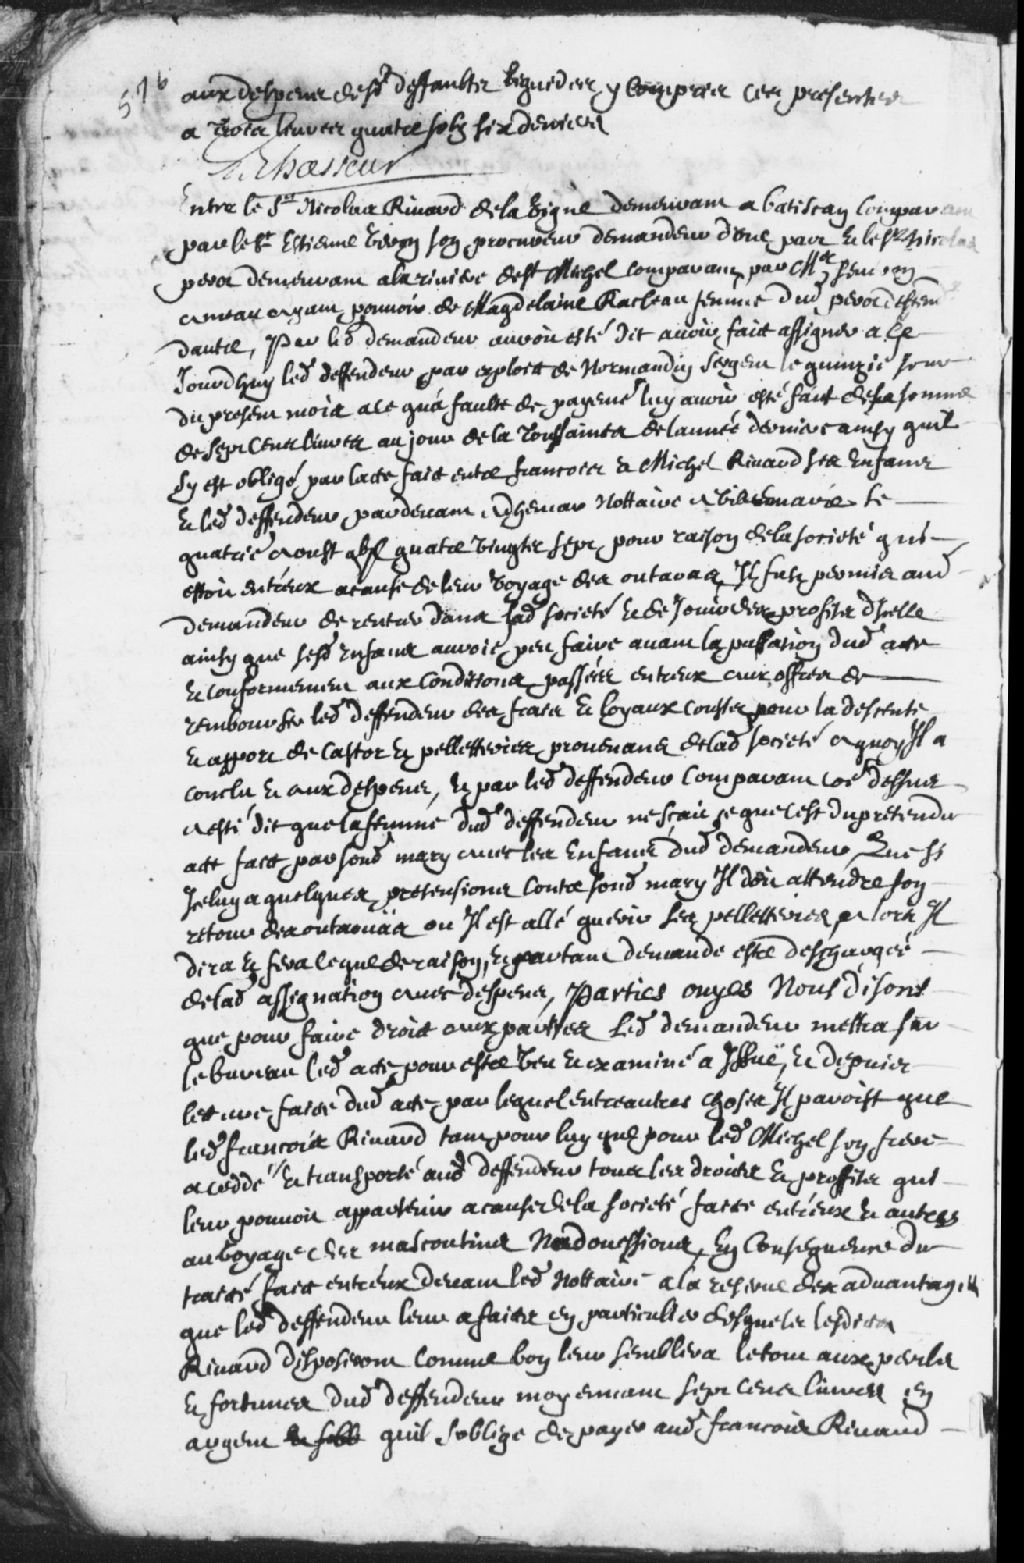 576
aux despens desd deffaultz liquidez y compris ces presentes
a trois livres quatre solz six deniers
Le Chasseur
Entre le Sr Nicolas Rivard de la Vigne demeurant a batiscan comparant
par le Sr Estienne Veron son procureur demandeur d'une part Et le Sr Nicolas
perot demeurant a la riviere de St Michel comparant par Me
ayant pouvoir de Magdelaine Racleau femme dud perot deffend
dautre, Par led demandeur auroit esté dit avoir fait assigner a ce
Jourdhuy led deffendeur par exploit de Normandin sergent le quinzie jour
du present mois a ce qua faulte de payemt luy avoir esté fait de la somme
de sept cens livres au jour de la Toussaintz de lannée derniere ainsy quil
sy est obligé par lacte fait entre francois & Michel Rivard ses Enfans
Et led deffendeur pardevant Adhemar Nottaire a Ville marie le
quatrie aoust gbjC quatre vingtz sept pour raison de la societé qui
estoit entreux a cause de leur voyage des outavas Il fust permis aud
demandeur de rentrer dans lad societé Et de Jouir des profits d'Icelle
ainsy que sesd Enfans auroit peu faire avant la passation dud acte
Et conformement aux conditions passées entreux aux offres de
rembourser led deffendeur des frais Et loyaux cousts pour la descente
Et apport de Castor Et pelletteries provenans de lad societé a quoy Il a
conclu Et aux despens, Et par led deffendeur comparant coe dessus
a esté dit que la femme dud deffendeur ne scait ce que cest du pretendu
acte fait par sond mary avec les Enfans dud demandeur Que sy
Iceluy a quelques pretensions contre sond mary Il doit attendre son
retour des outaouäs ou Il est allé querir ses pelletteries alors Il
dira Et fera ce que de raison, Et partant demande estre deschargée
de lad assignation avec despens, Parties ouyes Nous disons
que pour faire droit aux parties Led demandeur mettra sur
le bureau led acte pour estre veu Et examiné a Issuë, Et depuis
lecture faite dud acte par lequel entreautres choses Il paroist que
led francois Rivard tant pour luy que pour led Michel son frere
a ceddé Et transporté aud deffendeur tous les droits Et proffits qui
leur pouvoit appartenir a cause de la societé faite entreux Et autres
au voyage des mascoutins Nadouessioux, En Consequence du
traité fait entreux devant led Nottaire a la reserve des advantages
que led deffendeur leur a faits en particulier desquels lesdits
Rivard disposeront comme bon leur semblera le tout aux perils
Et fortunes dud deffendeur moyennant sept cens livres en
argent quil soblige de payer aud francois Rivard